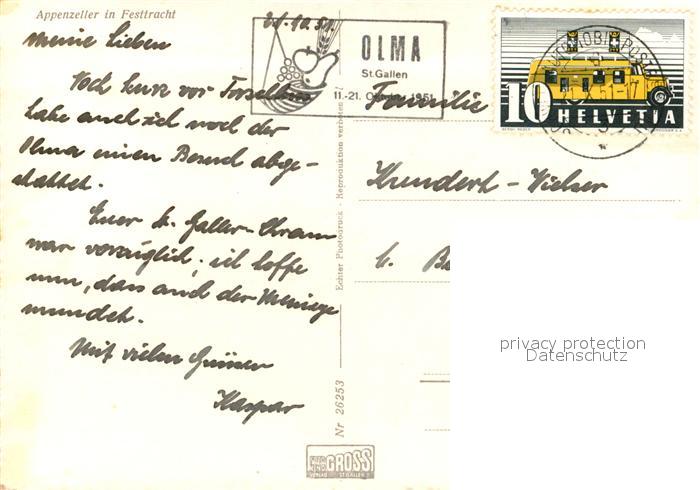 Appenzeller in Festtracht
21.10.51
Meine Lieben
Noch kurz vor
habe auch ich noch der
Olma einen Besuch abge-
stattet.
Euer St. Galler-Chram
war vorzüglich, ich hoffe
nun, dass auch der Meinige
mundet.
Mit vielen Grüssen
Kaspar
OLMA
St.Gallen
11-21. Oktober 1951
10 HELVETIA
Familie
Kundert-
b.
Echter Photodruck - Reproduktion verboten
Nr 26253
GROSS
privacy protection
Datenschutz